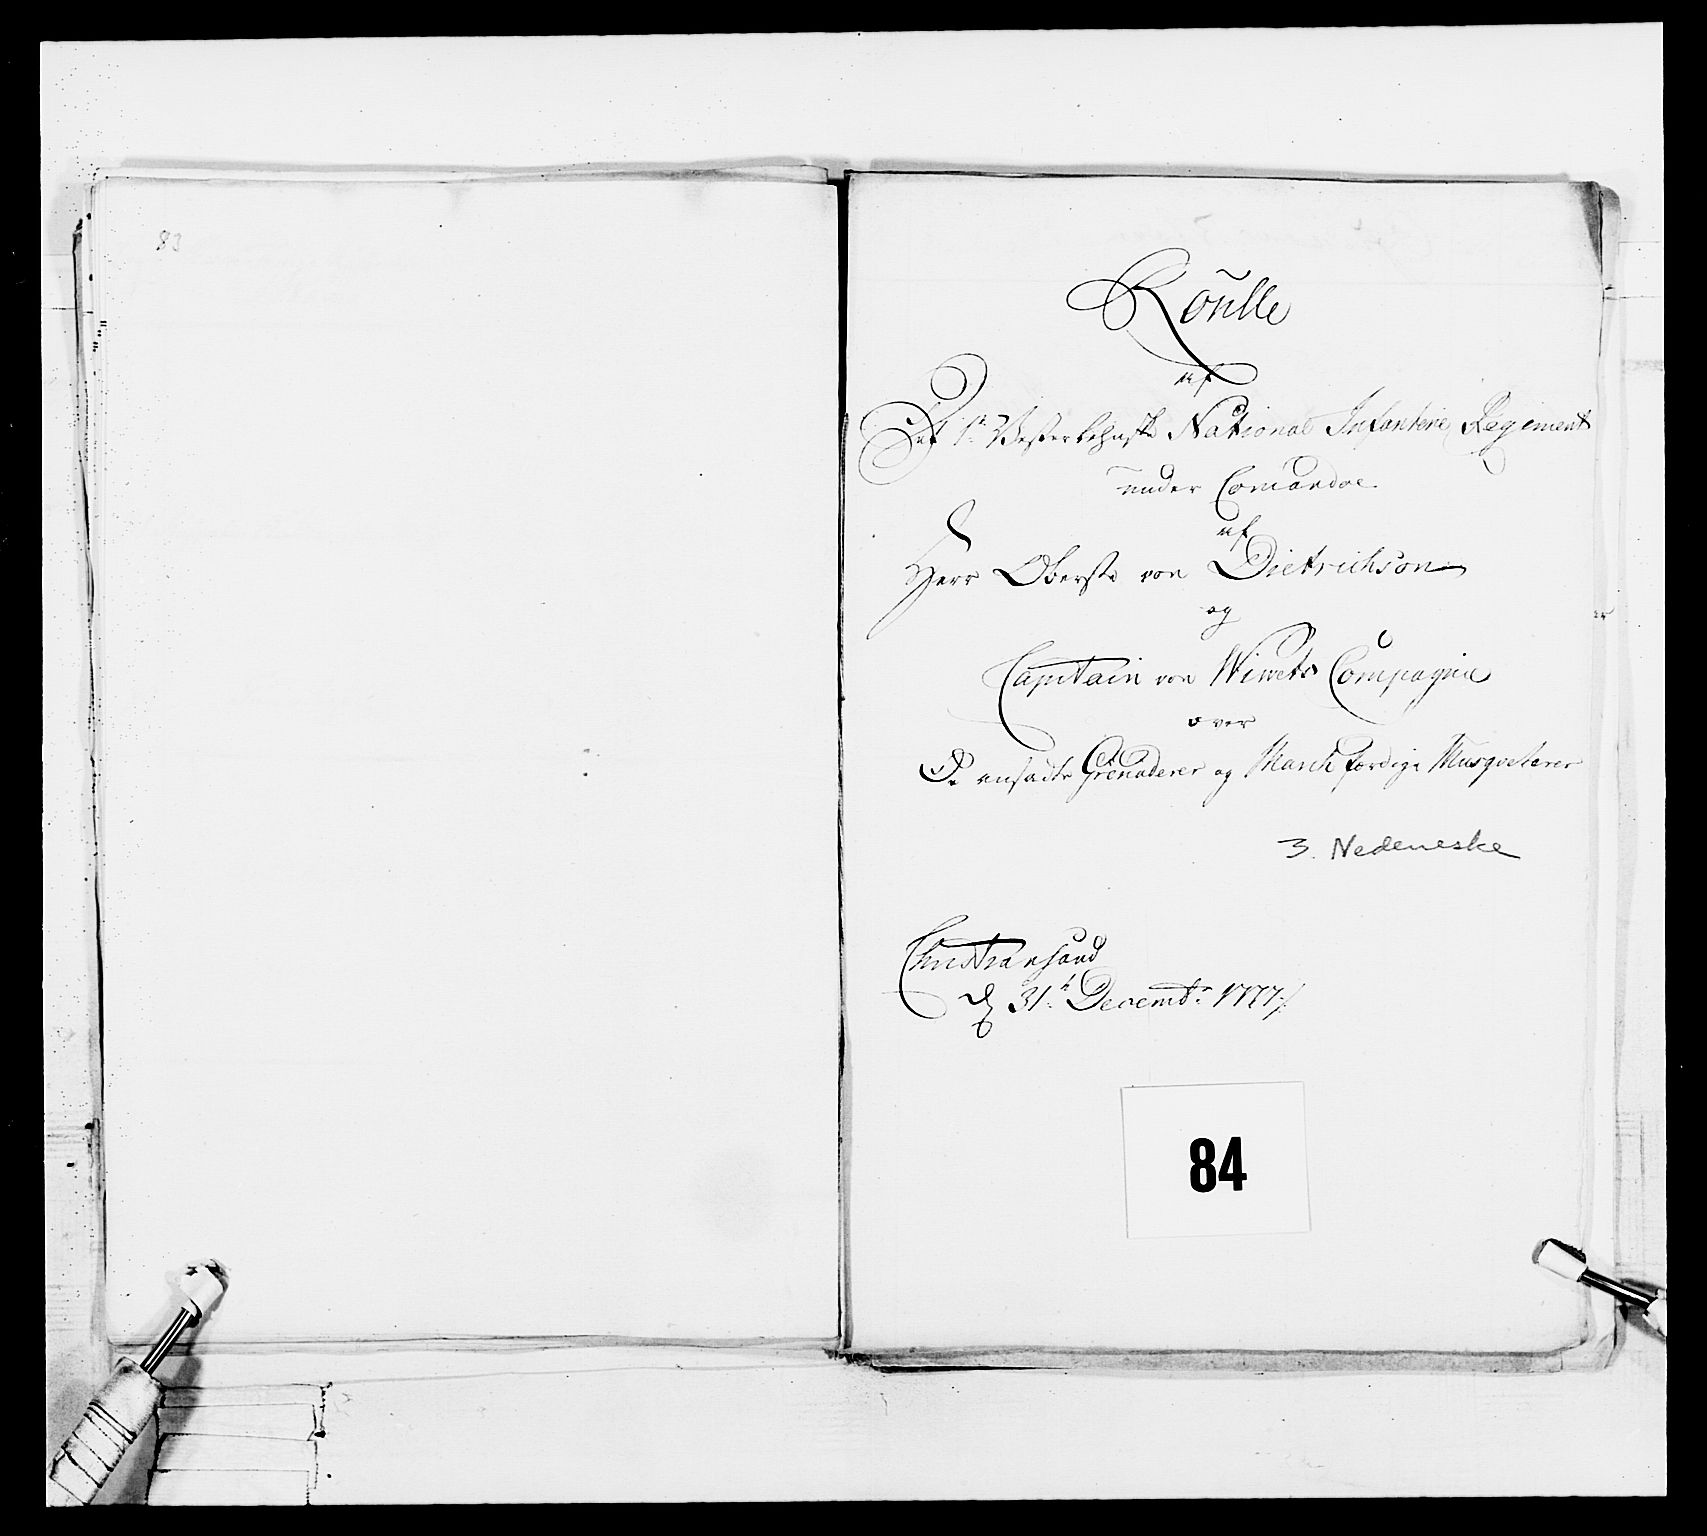 83
Roulle
af
Det 1te Vesterlehnske National Infanterie Regiment
under Comandoe
af
Herr Oberste von Dietrichson
og
Capitain von Wiwets Compagnie
over
De ansadte Grenaderer og March færdige Musqveterer
3. Nedeneske
Christiansand
d 31te Decembr 1777
84